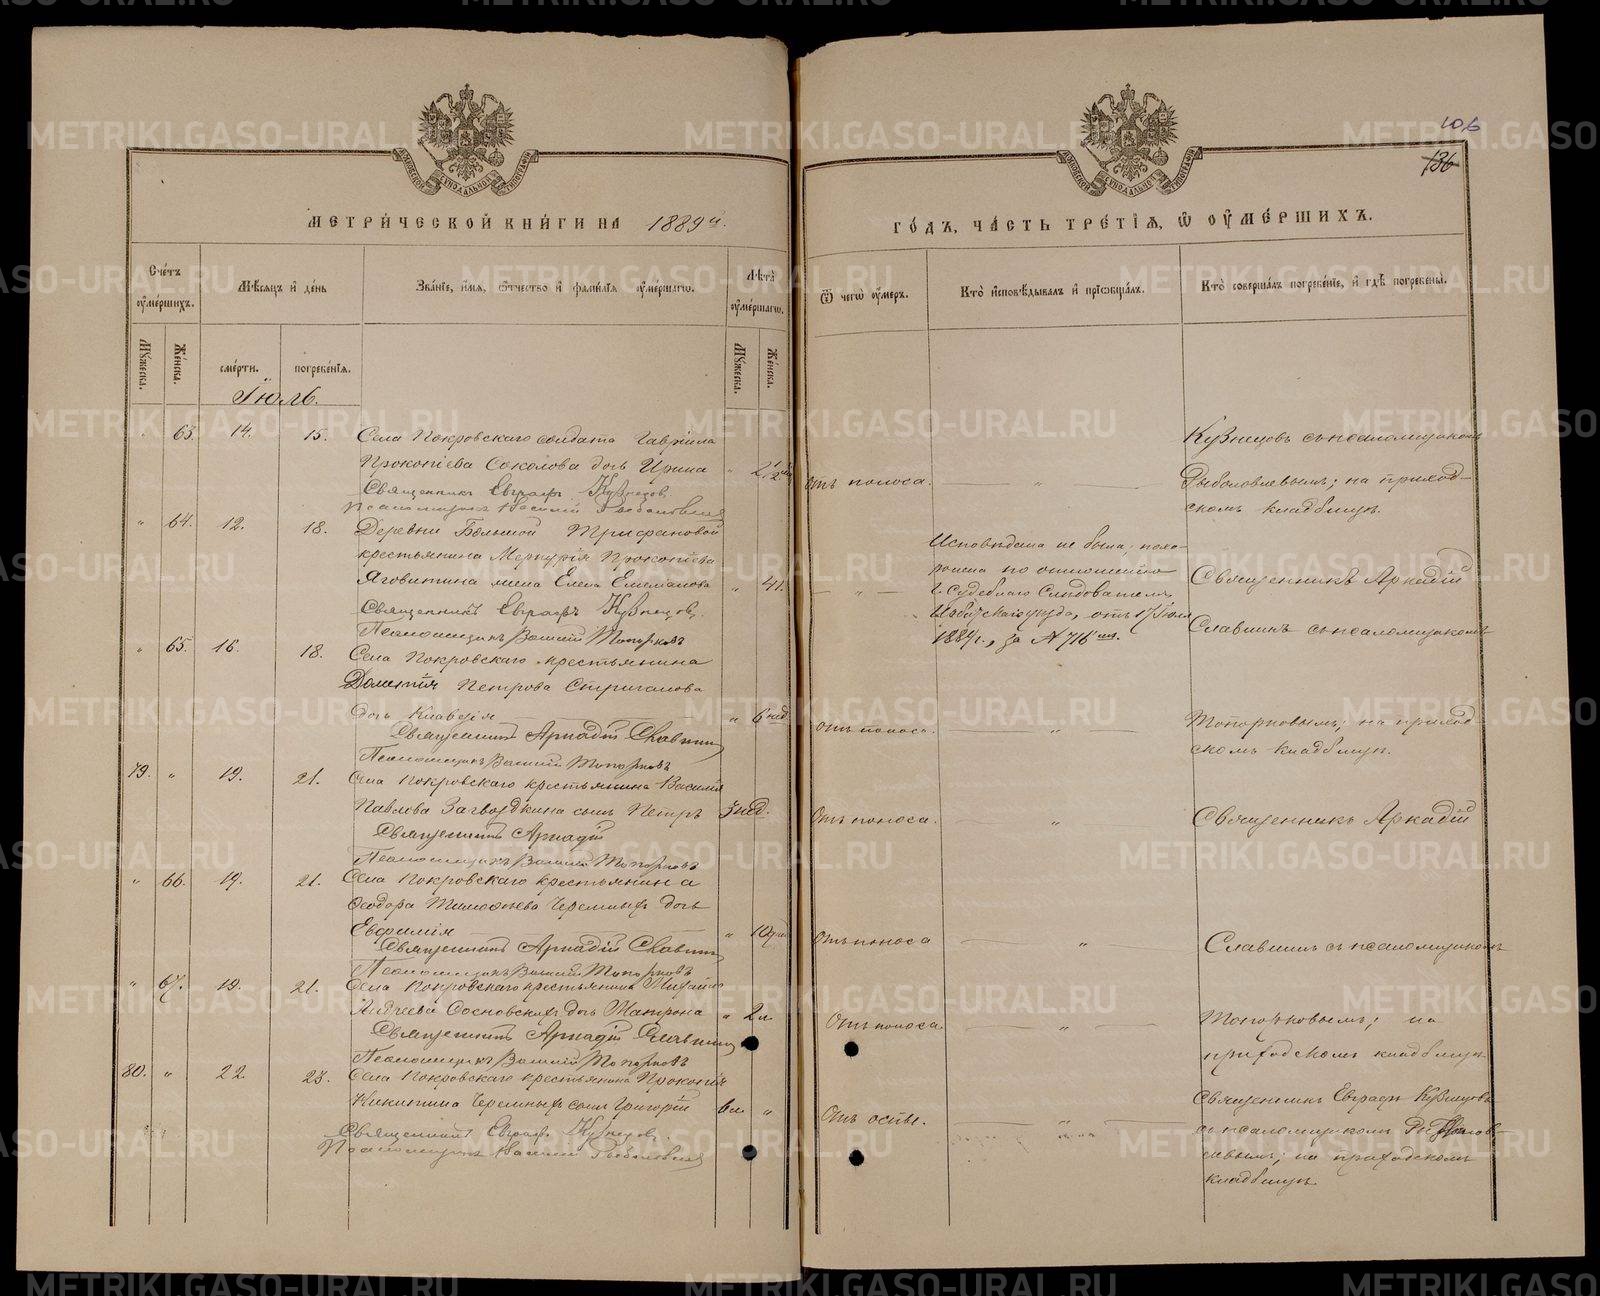 106
136
МЕТРИЧЕСКОЙ КНИГИ НА 1889 й.
ГОДЪ, ЧАСТЬ ТРЕТІЯ, Ѿ ОУМЕРШИХЪ.
Счетъ оумершихъ.
Мѣсяцъ и день
Званіе, имя, отчество и фамилія оумершагѡ.
Лѣта оумершагѡ.
Ѿ чегѡ оумеръ.
Кто исповѣдывалъ и пріобщалъ.
Кто совершалъ погребеніе, и гдѣ погребены.
Мужеска.
Женска.
смерти.
погребенія.
Мужеска.
Женска.
Іюль.
63. 14. 15. Села Покровскаго солдата Гавріила
Прокопіева Соколова дочь Ирина
Священникъ Евграфъ Кузнецов.
Отъ поноса.
Кузнецовъ съ псаломщикомъ
Рыболовлевымъ; на приход-
скомъ кладбищѣ.
" 64. 12. 18. Деревни Большой Трифановой
крестьянина Меркурія Прокопіева
Яговитина жена Елена Емеліанова " 41.
Священникъ Евграфъ Кузнецов.
Псаломщикъ Василій Топорковъ
Исповѣдана не была; похо-
ронена по отношенію
Судебнаго Слѣдователя
Ирбитскаго уѣзда, отъ 17 Іюля
1889 г., за № 716
Священникъ Аркадій
Славнинъ съ псаломщикомъ
" 65. 16. 18. Села Покровскаго крестьянина
Дометія Петрова Стриганова
дочь Клавдія " 6 нед.
Священникъ Аркадій Славнин
Псаломщикъ Василій Топорковъ
Отъ поноса.
Топорковымъ; на приход
скомъ кладбищѣ.
79. " 19. 21. Села Покровскаго крестьянина Василія
Павлова Загвоздкина сынъ Петръ 3 нед.
Священникъ Аркадій
Псаломщикъ Василій Топорковъ
Отъ поноса.
Священникъ Аркадій
" 66. 19. 21. Села Покровскаго крестьянина
Ѳеодора Тимоѳеева Черемныхъ дочь
Евфимія
Священникъ Аркадій Славнин
Псаломщикъ Василій Топорковъ
Отъ поноса
Славнинъ съ псаломщикомъ
" 67. 19. 21. Села Покровскаго крестьянина Михаила
Андреева Сосновскихъ дочь Матрона " 2 л.
Священникъ Аркадій Славнин
Псаломщикъ Василій Топорковъ
Отъ поноса.
Топорковымъ; на
приходскомъ кладбищѣ
80. " 22. 23. Села Покровскаго крестьянина Прокопія
Никитина Черемныхъ сынъ Григорій "
Священникъ Евграфъ Кузнецов.
Отъ оспы.
Священникъ Евграфъ Кузнецовъ
съ псаломщикомъ Рыболов-
левымъ; на приходскомъ
кладбищѣ.
METRIKI.GASO-URAL.RU